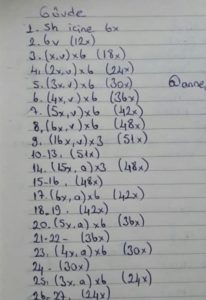 Gövde
1. Sh içine 6x
2. 6v (12x)
3. (x,v)x6 (18x)
4. (2x,v)x6 (24x)
5. (3x,v)x6 (30x)
6. (4x,v)x6 (36x)
7. (5x,v)x6 (42x)
8. (6x,v)x6 (48x)
9. (16x,v)x3 (51x)
10-13. (51x)
14. (15x,a)x3 (48x)
15-16. (48x)
17. (6x,a)x6 (42x)
18-19. (42x)
20. (5x,a)x6 (36x)
21-22- (36x)
23. (4x,a)x6 (30x)
24. (30x)
25. (3x,a)x6 (24x)
26-27. (24x)